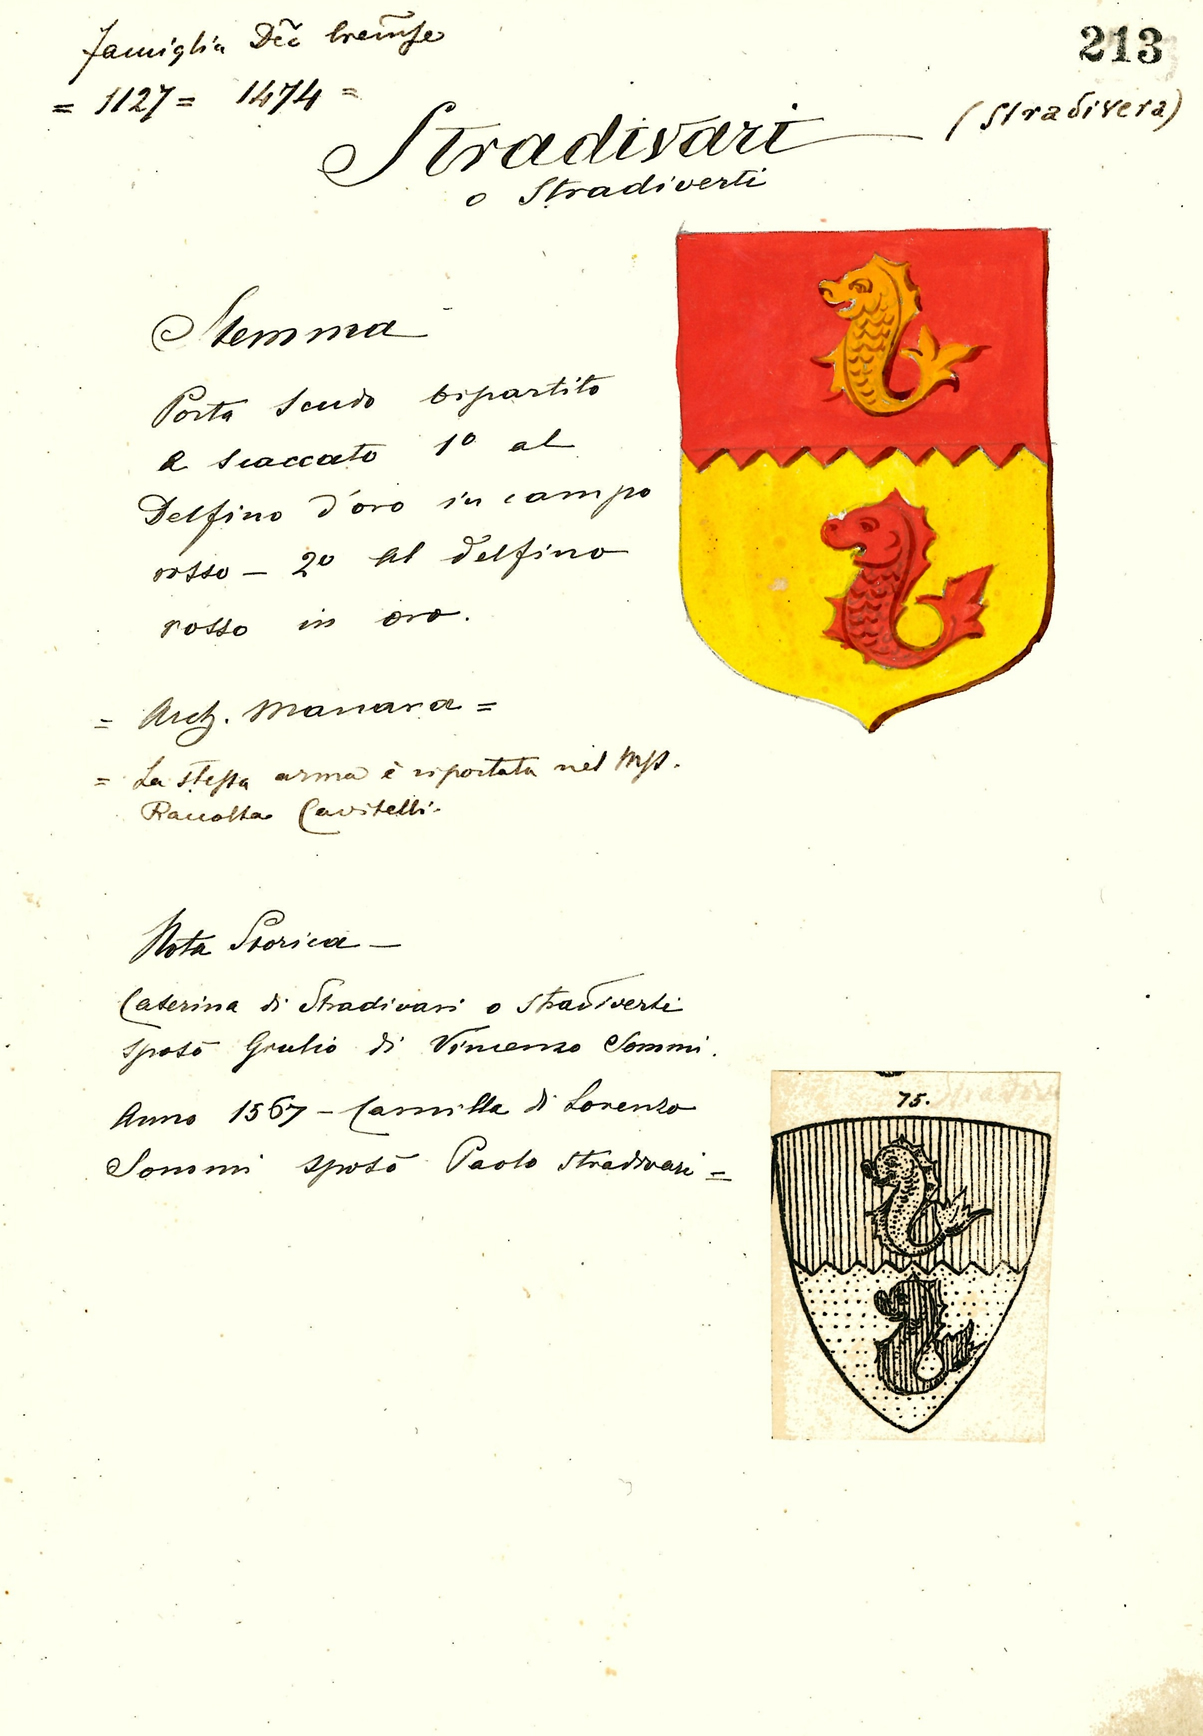 famiglia Dec̃ Crem̃se
213
= 1127 = 1474 =
(Stradivera)
Stradivari
o Stradiverti
Stemma
Porta scudo bipartito
a scaccato 1º al
Delfino d'oro in campo
rosso — 2º Al delfino
rosso in oro.
= Arch. Manara =
= La stessa arma è riportata nel Mss.
Raccolta Cavitelli.
Nota Storica —
Caterina di Stradivari o Stradiverti
sposò Giulio di Vincenzo Sommi.
Anno 1567 — Camilla di Lorenzo
Sommi sposò Paolo Stradivari =
75.